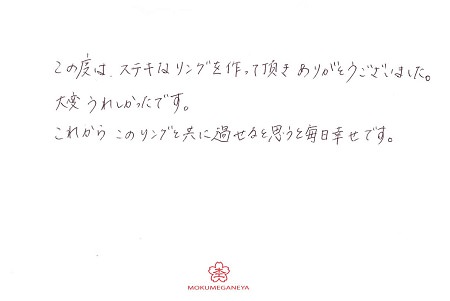 この度は、ステキなリングを作って頂きありがとうございました。
大変うれしかったです。
これから このリングと共に過せると思うと毎日幸せです。
MOKUMEGANEYA